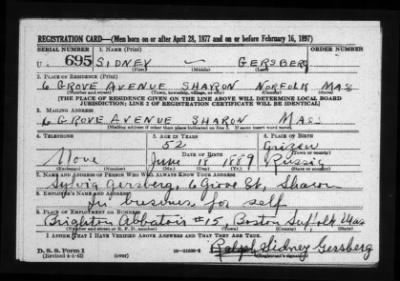 REGISTRATION CARD—(Men born on or after April 28, 1877 and on or before February 16, 1897)
SERIAL NUMBER 1. NAME (Print) ORDER NUMBER
U 695 SIDNEY — GERSBERG
(First) (Middle) (Last)
2. PLACE OF RESIDENCE (Print)
6 GROVE AVENUE SHARON NORFOLK MAS
(Number and street) (Town, township, village, or city) (County) (State)
[THE PLACE OF RESIDENCE GIVEN ON THE LINE ABOVE WILL DETERMINE LOCAL BOARD
JURISDICTION; LINE 2 OF REGISTRATION CERTIFICATE WILL BE IDENTICAL]
3. MAILING ADDRESS
6 GROVE AVENUE SHARON MAS
(Mailing address if other than place indicated on line 2. If same insert word same)
4. TELEPHONE 5. AGE IN YEARS 6. PLACE OF BIRTH
52 Grizew
None DATE OF BIRTH
June 18 1889 Russia
7. NAME AND ADDRESS OF PERSON WHO WILL ALWAYS KNOW YOUR ADDRESS
Sylvia Gersberg, 6 Grove St, Sharon
8. EMPLOYER'S NAME AND ADDRESS
In business for self
9. PLACE OF EMPLOYMENT OR BUSINESS
Brighton Abbatoir #15, Boston Suffolk Mas
(Number and street or R. F. D. number) (Town) (County) (State)
I AFFIRM THAT I HAVE VERIFIED ABOVE ANSWERS AND THAT THEY ARE TRUE.
D. S. S. Form 1 Ralph Sidney Gersberg
(Revised 4-1-42) (over) (Registrant's signature)